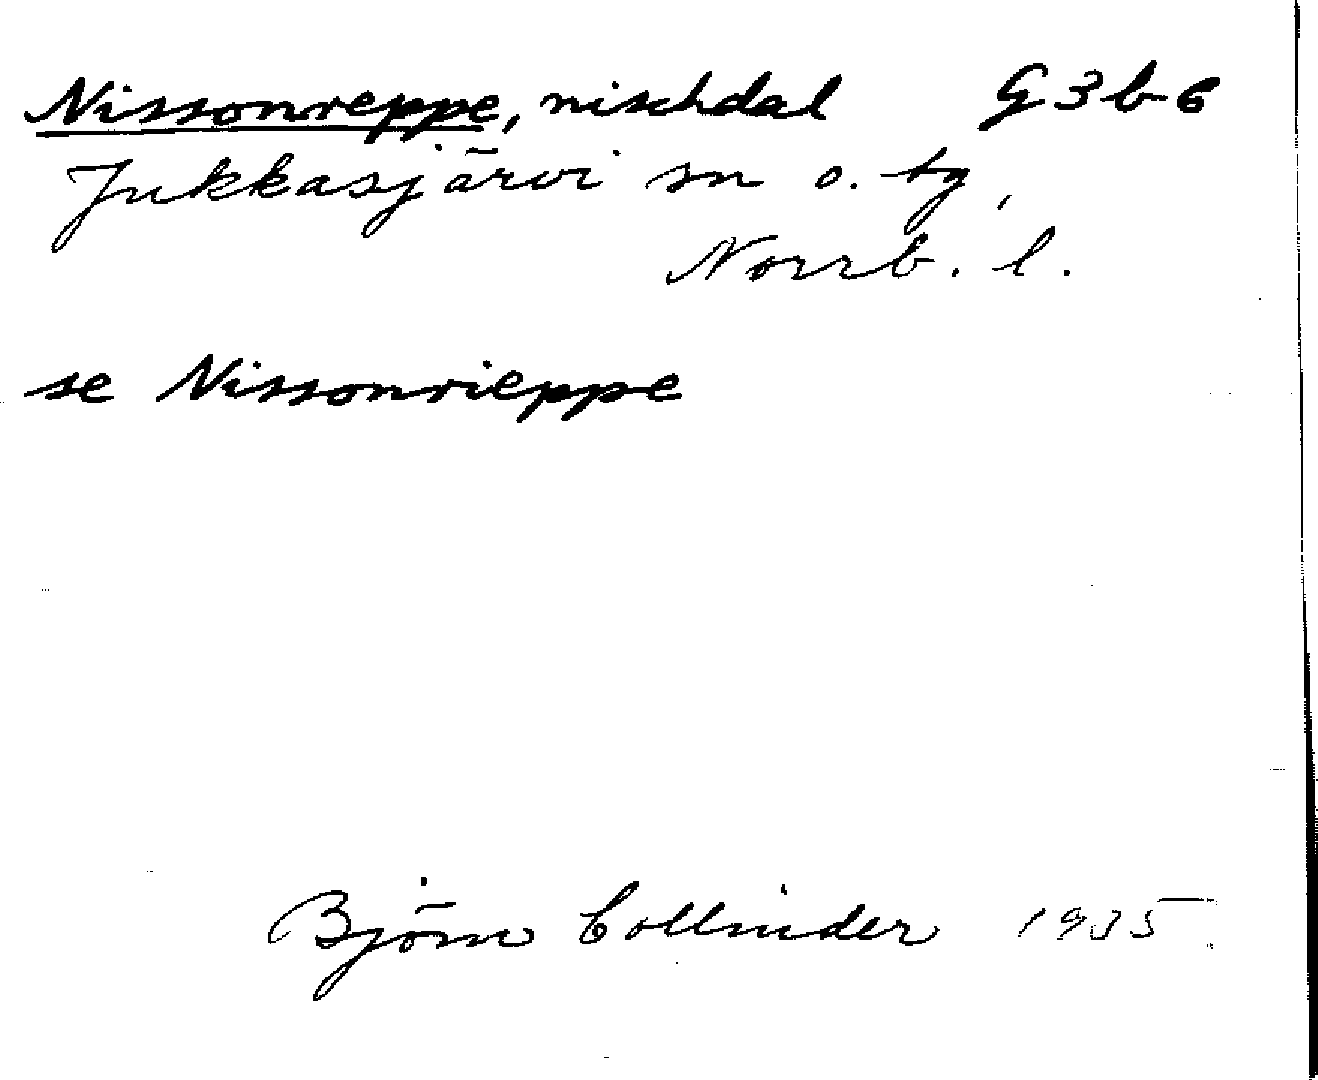 Nissonreppe, nischdal G3b6
Jukkasjärvi sn o. tg,
Norrb. l.
se Nissonrieppe
Björn Collinder 1935